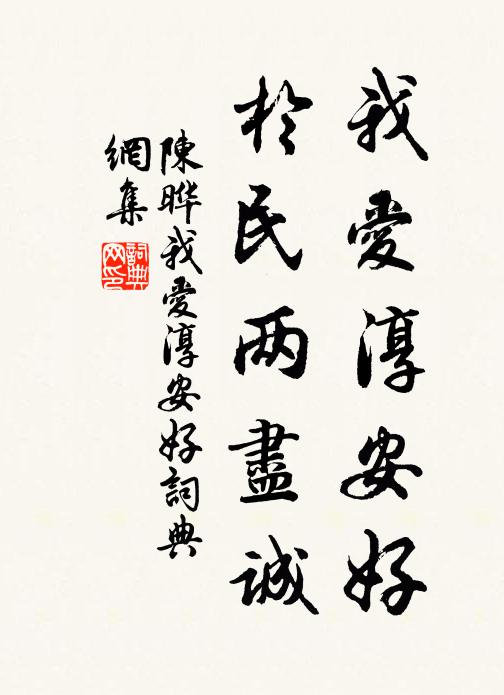 我愛淳安好
於民両盡誠
陳晔我愛淳安好詞典
網集
詞典
网印